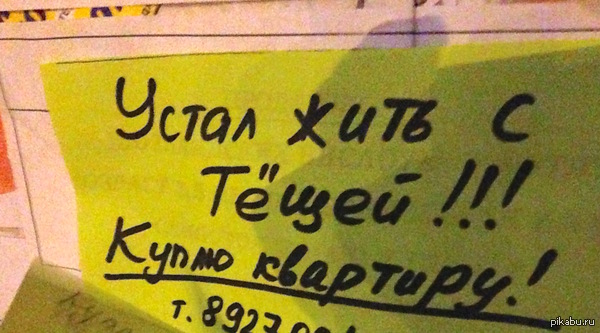 Устал жить с
Тёщей!!!
Куплю квартиру!
т. 8927
pikabu.ru